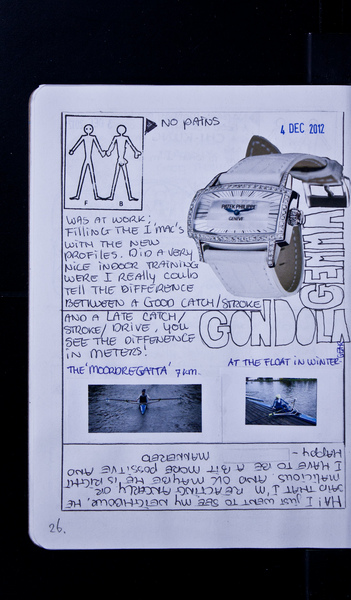 NO PAINS
4 DEC 2012
F B
PATEK PHILIPPE
GENEVE
WAS AT WORK;
FILLING THE I'MAC'S
WITH THE NEW
PROFILES. DID A VERY
NICE INDOOR TRAINING
WERE I REALLY COULD
TELL THE DIFFERENCE
BETWEEN A GOOD CATCH/STROKE
AND A LATE CATCH/
STROKE/DRIVE, YOU
SEE THE DIFFERENCE
IN METERS!
GONDOLO
GEMMA
THE 'MOORDREGATTA' 7km.
AT THE FLOAT IN WINTER
HA! I JUST WENT TO SEE MY NEIGHBOUR, HE
SAID THAT I'M REACTING ANGERLY OR
MALICIOUS AND OK MAYBE HE IS RIGHT
I HAVE TO BE A BIT MORE POSSITIVE AND
HAPPY - MANNERED
26.